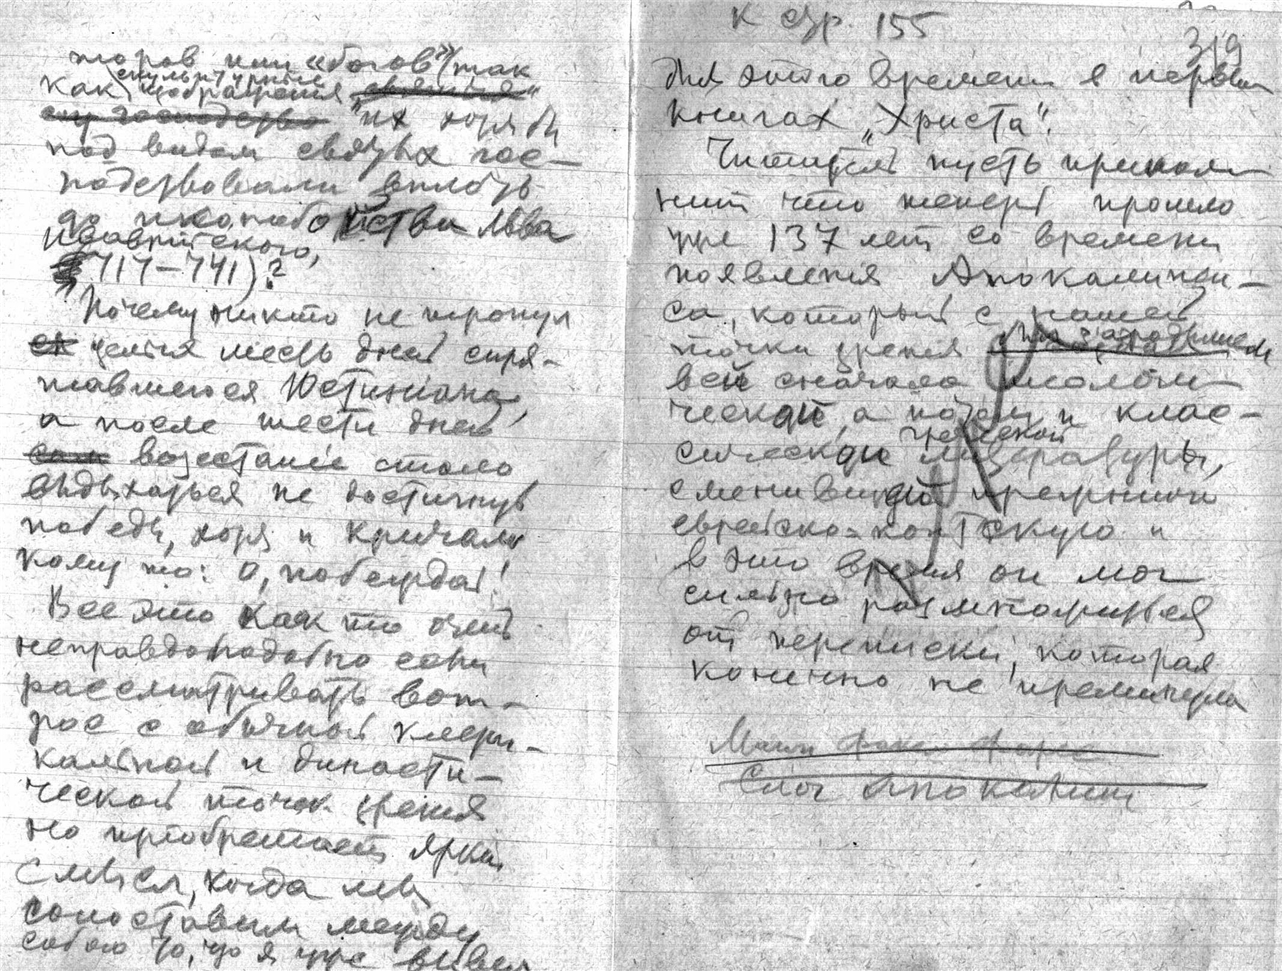 торов или «богов» (так
как скульптурные
изображения
их хотя бы
под видом святых гос-
подствовали вплоть
до иконоборства Льва
Исаврийского,
717–741)?
Почему никто не тронул
целых шесть дней спря-
тавшегося Юстиниана,
а после шести дней
возстание стало
выдыхаться не достигнув
победы, хотя и кричали
кому то: о, побеждай!
Все это как то очень
неправдоподобно если
рассматривать воп-
рос с обычной клери-
кальной и династи-
ческой точек зрения
но приобретает яркий
смысл, когда мы
сопоставим между
собою то, что я уже вывел
к стр 155
319
для этого времени в первых
книгах „Христа".
Читатель пусть припом-
нит что теперь прошло
уже 137 лет со времени
появления Апокалипси-
са, который с нашей
точки зрения
всей сначала
ческой, а потом и клас-
сической греческой литературы,
сменившей прежнюю
еврейско-коптскую и
в это время он мог
сильно размножиться
от переписки, которая
конечно не преминула
Слог Апокалип